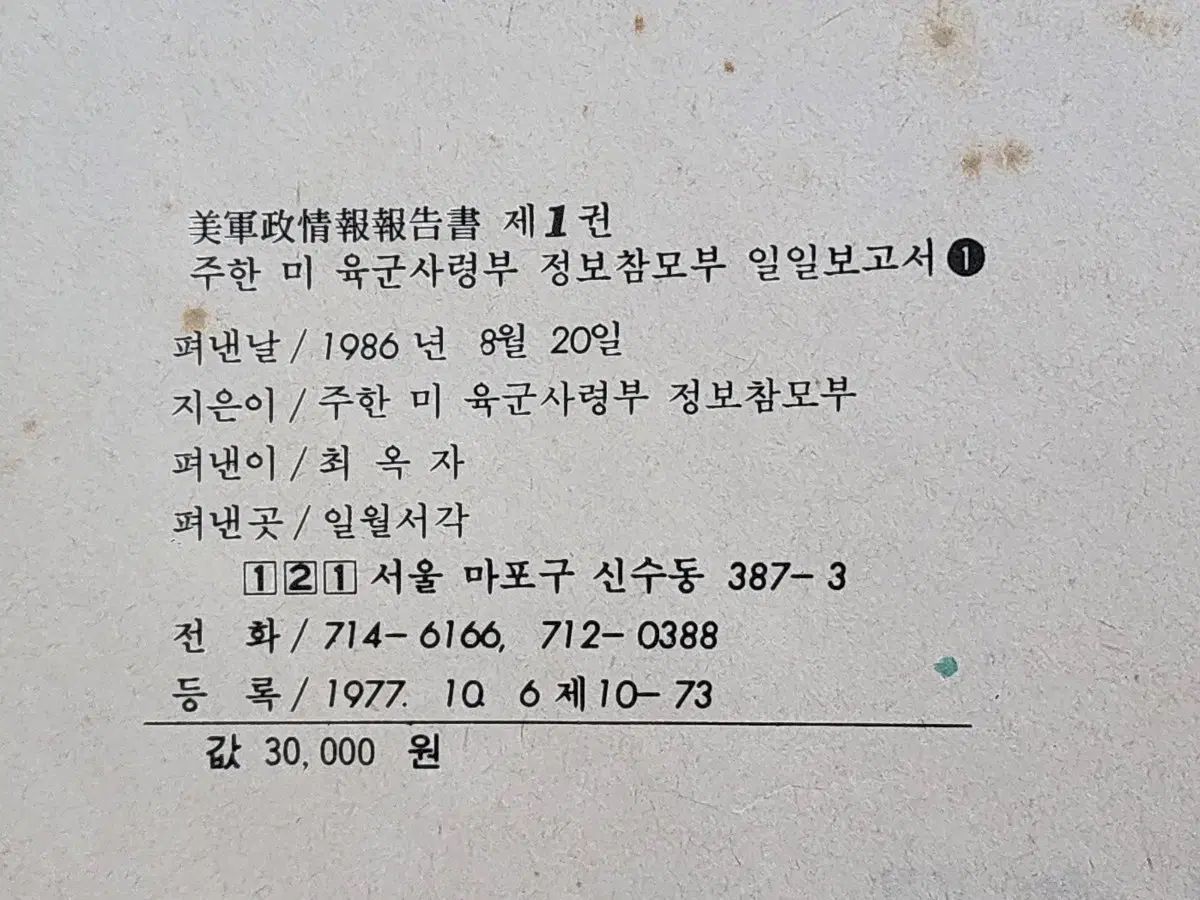 美軍政情報報告書 제1권
주한 미 육군사령부 정보참모부 일일보고서❶
펴낸날/1986년 8월 20일
지은이/주한 미 육군사령부 정보참모부
펴낸이/최 옥 자
펴낸곳/일월서각
121 서울 마포구 신수동 387-3
전 화/714-6166, 712-0388
등 록/1977. 10. 6 제10-73
값 30,000 원